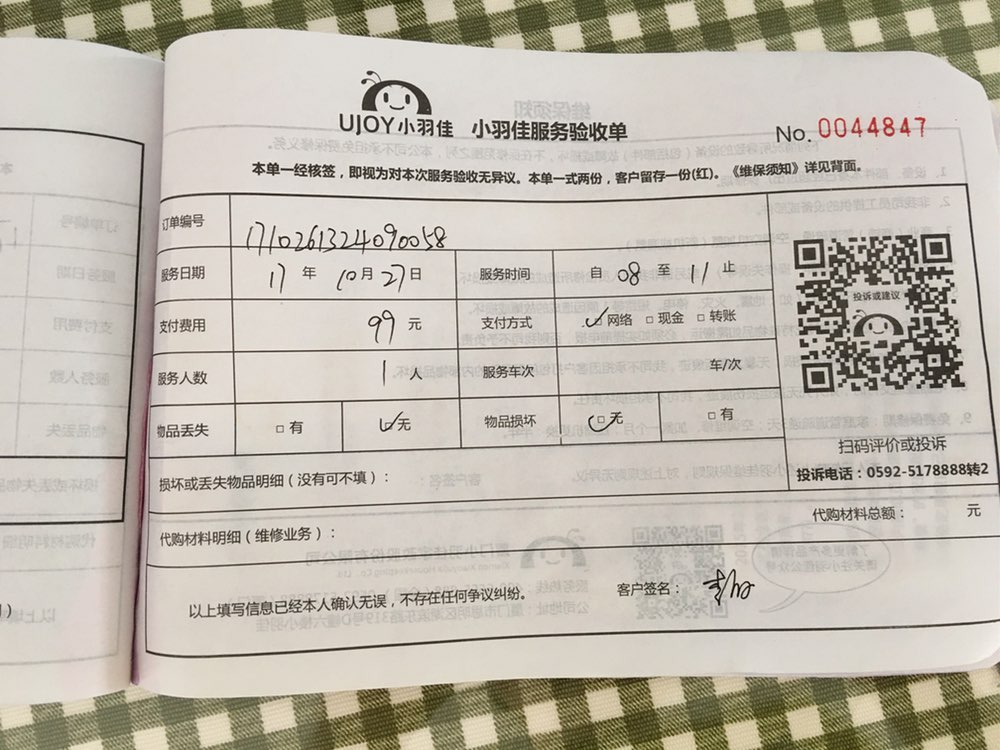 UJOY小羽佳 小羽佳服务验收单
No. 0044847
本单一经核签，即视为对本次服务验收无异议。本单一式两份，客户留存一份(红)。《维保须知》详见背面。
订单编号 1710261324090058
服务日期 17 年 10 月 27 日 服务时间 自 08 至 11 止
支付费用 99 元 支付方式 ☑网络 □现金 □转账
服务人数 1 人 服务车次 车/次
物品丢失 □有 ☑无 物品损坏 ☑无 □有
投诉或建议
扫码评价或投诉
投诉电话：0592-5178888转2
损坏或丢失物品明细（没有可不填）：
代购材料明细（维修业务）：
代购材料总额： 元
以上填写信息已经本人确认无误，不存在任何争议纠纷。
客户签名：